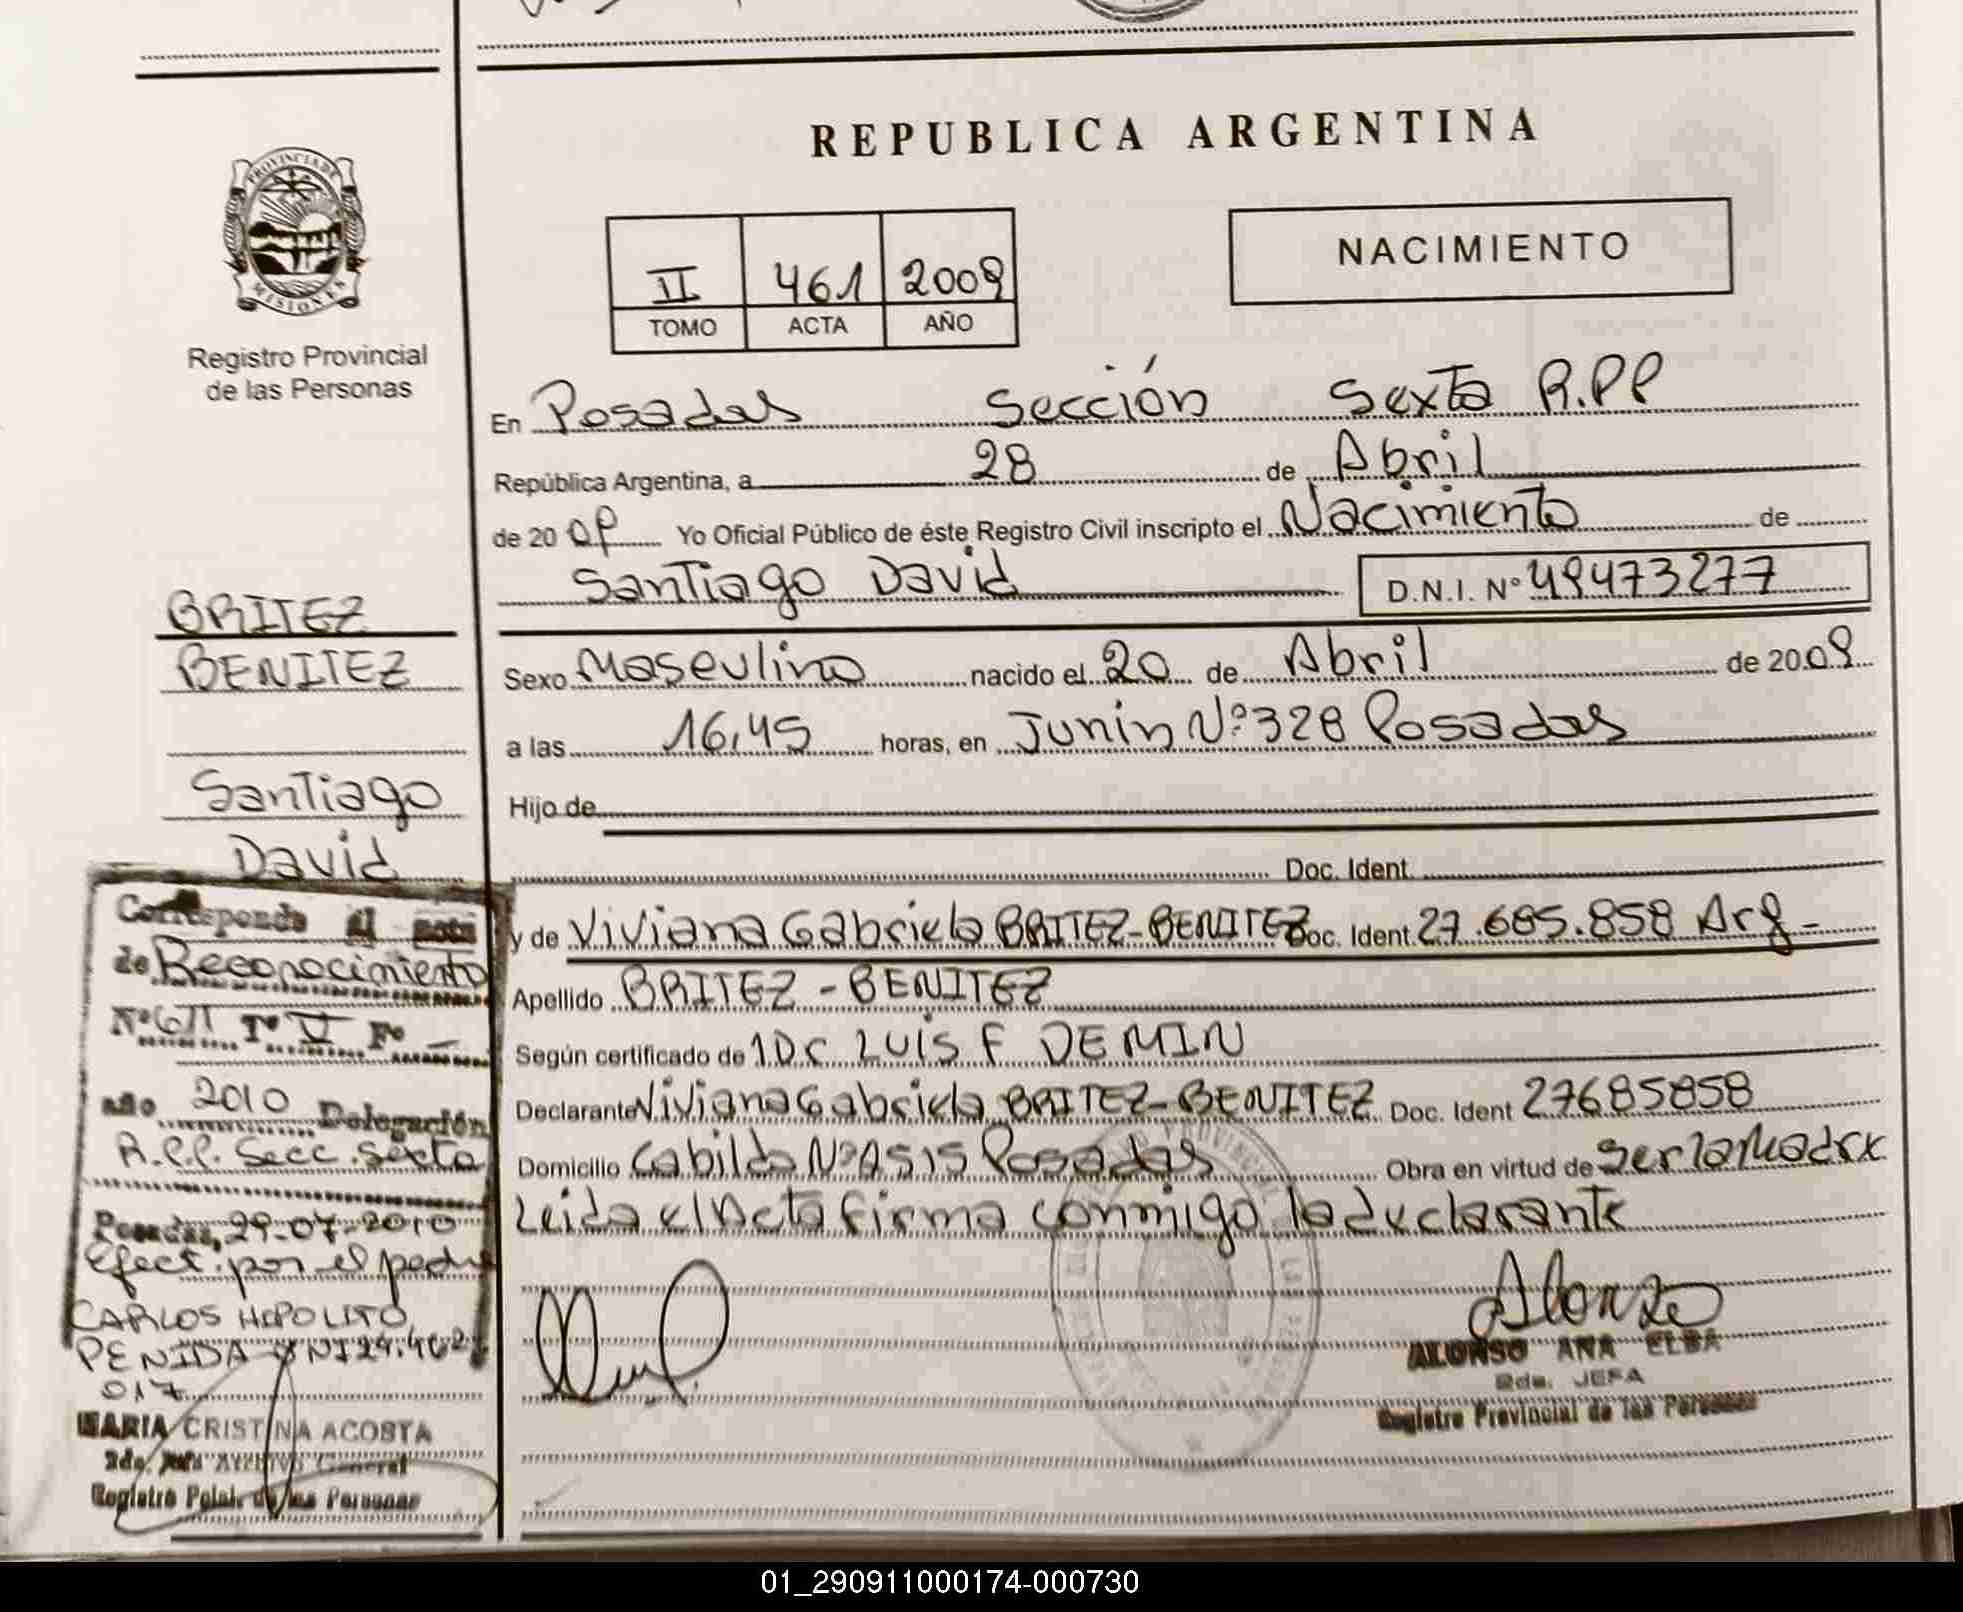 REPUBLICA ARGENTINA
PROVINCIA DE
MISIONES
Registro Provincial
de las Personas
II 461 2009
TOMO ACTA AÑO
NACIMIENTO
En Posadas Sección Sexta R.PP
República Argentina, a 28 de Abril
de 20 09 Yo Oficial Público de éste Registro Civil inscripto el Nacimiento de
Santiago David D.N.I. Nº 49473277
BRITEZ
BENITEZ
Santiago
David
Sexo Masculino nacido el 20 de Abril de 2009
a las 16,45 horas, en Junin Nº 328 Posadas
Hijo de
Doc. Ident.
y de Viviana Gabriela BRITEZ-BENITEZ Doc. Ident. 27.685.858 Arg-
Apellido BRITEZ - BENITEZ
Según certificado de 1 Dr LUIS F DEMIN
Declarante Viviana Gabriela BRITEZ-BENITEZ Doc. Ident 27685858
Domicilio Cabildo Nº 1515 Posadas Obra en virtud de ser la Madre
Leida el Acta firma conmigo la declarante
Corresponde al acta
de Reconocimiento
Nº 611 Tº V Fº -
año 2010 Delegación
R.P.P. Secc. Sexta
Posadas, 29-07-2010
Efect. por el padre
CARLOS HIPOLITO
PENIDA DNI 29.462
017
MARIA CRISTINA ACOSTA
2da. Jefa Archivo General
Registro Pcial. de las Personas
Alonso
ALONSO ANA ELBA
2da. JEFA
Registro Provincial de las Personas
01_290911000174-000730